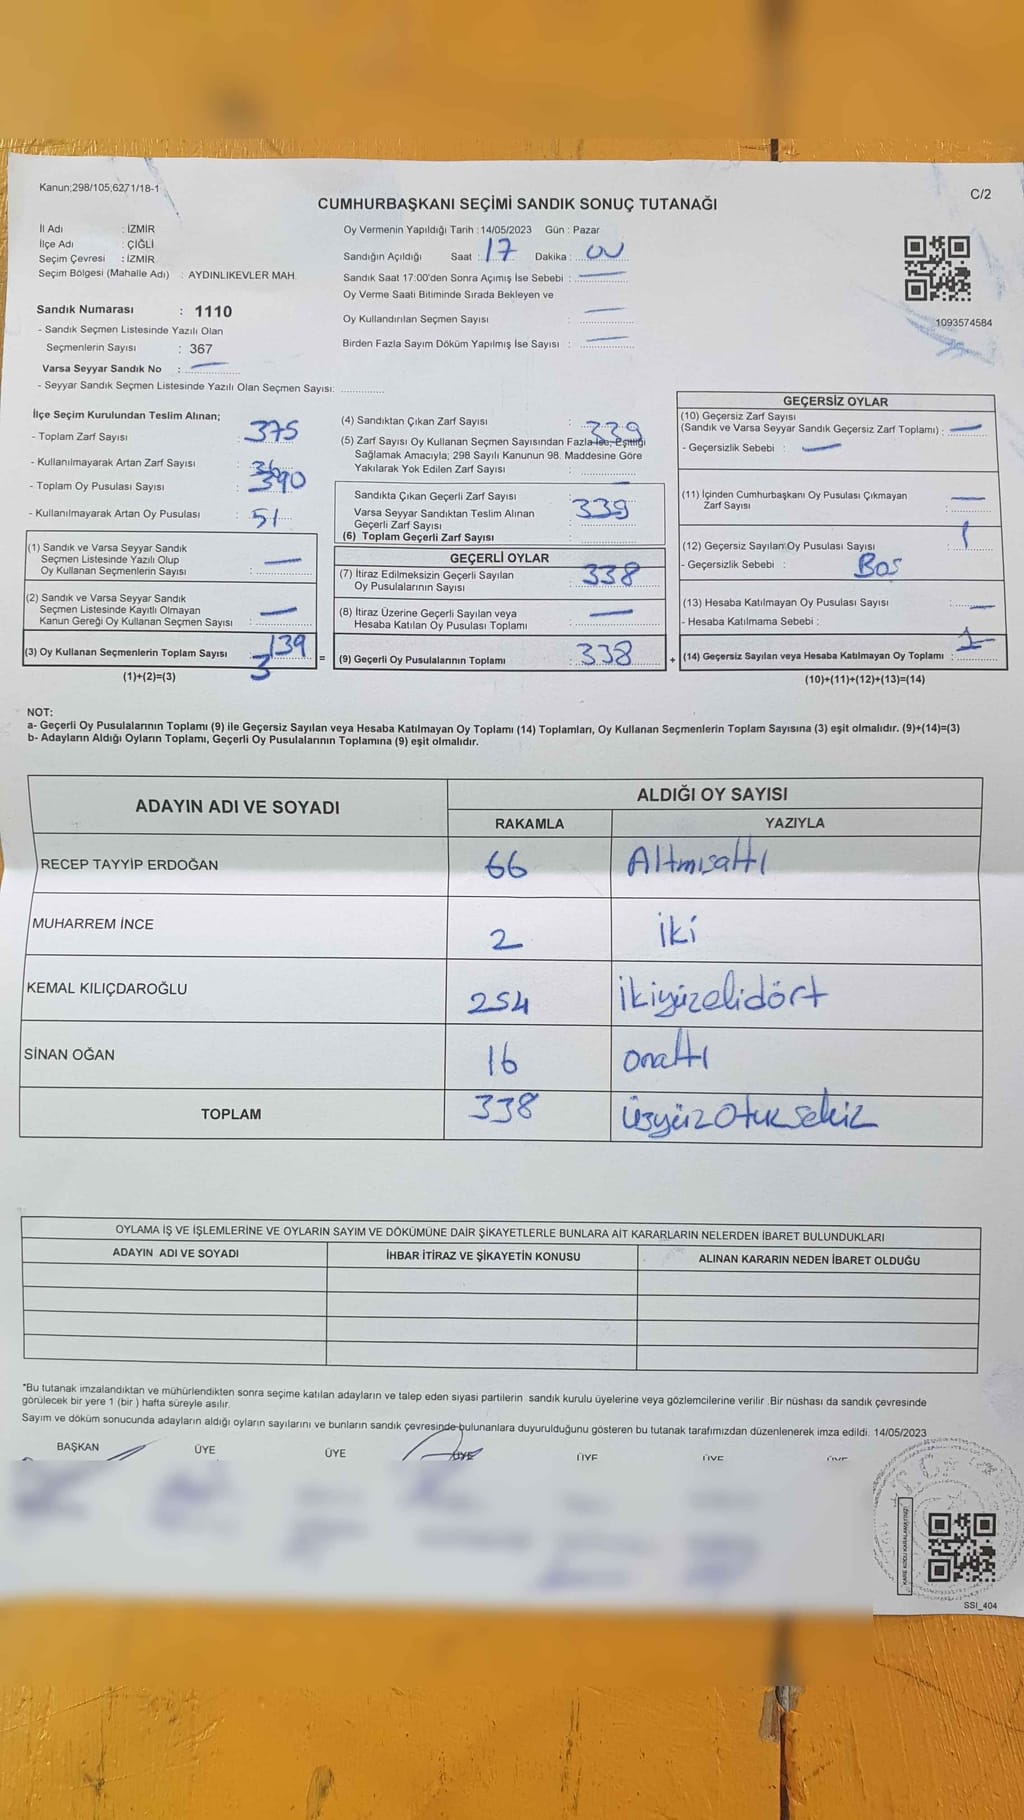 Kanun;298/105,6271/18-1
C/2
CUMHURBAŞKANI SEÇİMİ SANDIK SONUÇ TUTANAĞI
İl Adı : İZMİR
İlçe Adı : ÇİĞLİ
Seçim Çevresi : İZMİR
Seçim Bölgesi (Mahalle Adı) : AYDINLIKEVLER MAH.
Sandık Numarası : 1110
- Sandık Seçmen Listesinde Yazılı Olan
Seçmenlerin Sayısı : 367
Varsa Seyyar Sandık No : —
- Seyyar Sandık Seçmen Listesinde Yazılı Olan Seçmen Sayısı: ............
Oy Vermenin Yapıldığı Tarih : 14/05/2023 Gün : Pazar
Sandığın Açıldığı Saat : 17 Dakika : 00
Sandık Saat 17:00'den Sonra Açımış İse Sebebi : —
Oy Verme Saati Bitiminde Sırada Bekleyen ve
Oy Kullandırılan Seçmen Sayısı : —
Birden Fazla Sayım Döküm Yapılmış İse Sayısı : —
1093574584
İlçe Seçim Kurulundan Teslim Alınan;
- Toplam Zarf Sayısı : 375
- Kullanılmayarak Artan Zarf Sayısı : 36
- Toplam Oy Pusulası Sayısı : 390
- Kullanılmayarak Artan Oy Pusulası : 51
(1) Sandık ve Varsa Seyyar Sandık
Seçmen Listesinde Yazılı Olup
Oy Kullanan Seçmenlerin Sayısı : —
(2) Sandık ve Varsa Seyyar Sandık
Seçmen Listesinde Kayıtlı Olmayan
Kanun Gereği Oy Kullanan Seçmen Sayısı : —
(3) Oy Kullanan Seçmenlerin Toplam Sayısı : 139
3
(1)+(2)=(3)
=
(4) Sandıktan Çıkan Zarf Sayısı : 339
(5) Zarf Sayısı Oy Kullanan Seçmen Sayısından Fazla İse, Eşitliği
Sağlamak Amacıyla; 298 Sayılı Kanunun 98. Maddesine Göre
Yakılarak Yok Edilen Zarf Sayısı : —
Sandıkta Çıkan Geçerli Zarf Sayısı : 339
Varsa Seyyar Sandıktan Teslim Alınan
Geçerli Zarf Sayısı
(6) Toplam Geçerli Zarf Sayısı :
GEÇERLİ OYLAR
(7) İtiraz Edilmeksizin Geçerli Sayılan
Oy Pusulalarının Sayısı : 338
(8) İtiraz Üzerine Geçerli Sayılan veya
Hesaba Katılan Oy Pusulası Toplamı : —
(9) Geçerli Oy Pusulalarının Toplamı : 338
+
GEÇERSİZ OYLAR
(10) Geçersiz Zarf Sayısı
(Sandık ve Varsa Seyyar Sandık Geçersiz Zarf Toplamı) : —
- Geçersizlik Sebebi : —
(11) İçinden Cumhurbaşkanı Oy Pusulası Çıkmayan
Zarf Sayısı : —
(12) Geçersiz Sayılan Oy Pusulası Sayısı : 1
- Geçersizlik Sebebi : Boş
(13) Hesaba Katılmayan Oy Pusulası Sayısı : —
- Hesaba Katılmama Sebebi :
(14) Geçersiz Sayılan veya Hesaba Katılmayan Oy Toplamı : 1
(10)+(11)+(12)+(13)=(14)
NOT:
a- Geçerli Oy Pusulalarının Toplamı (9) ile Geçersiz Sayılan veya Hesaba Katılmayan Oy Toplamı (14) Toplamları, Oy Kullanan Seçmenlerin Toplam Sayısına (3) eşit olmalıdır. (9)+(14)=(3)
b- Adayların Aldığı Oyların Toplamı, Geçerli Oy Pusulalarının Toplamına (9) eşit olmalıdır.
ADAYIN ADI VE SOYADI
ALDIĞI OY SAYISI
RAKAMLA YAZIYLA
RECEP TAYYİP ERDOĞAN 66 Altmışaltı
MUHARREM İNCE 2 iki
KEMAL KILIÇDAROĞLU 254 ikiyüzelidört
SİNAN OĞAN 16 onaltı
TOPLAM 338 üçyüzotuzsekiz
OYLAMA İŞ VE İŞLEMLERİNE VE OYLARIN SAYIM VE DÖKÜMÜNE DAİR ŞİKAYETLERLE BUNLARA AİT KARARLARIN NELERDEN İBARET BULUNDUKLARI
ADAYIN ADI VE SOYADI İHBAR İTİRAZ VE ŞİKAYETİN KONUSU ALINAN KARARIN NEDEN İBARET OLDUĞU
*Bu tutanak imzalandıktan ve mühürlendikten sonra seçime katılan adayların ve talep eden siyasi partilerin sandık kurulu üyelerine veya gözlemcilerine verilir. Bir nüshası da sandık çevresinde
görülecek bir yere 1 (bir ) hafta süreyle asılır.
Sayım ve döküm sonucunda adayların aldığı oyların sayılarını ve bunların sandık çevresinde bulunanlara duyurulduğunu gösteren bu tutanak tarafımızdan düzenlenerek imza edildi. 14/05/2023
BAŞKAN ÜYE ÜYE ÜYE ÜYE ÜYE ÜYE
SSI_404